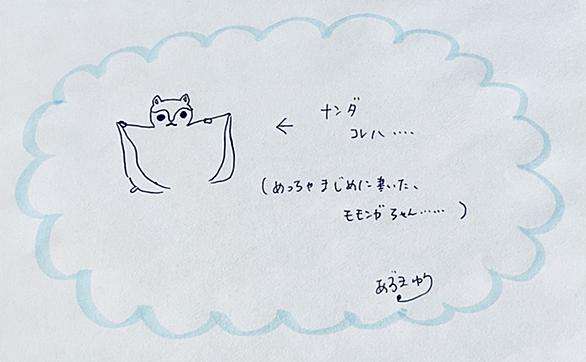 ← ナンダ
コレハ....
(めっちゃまじめに書いた、
モモンガちゃん......)
あずまゆう